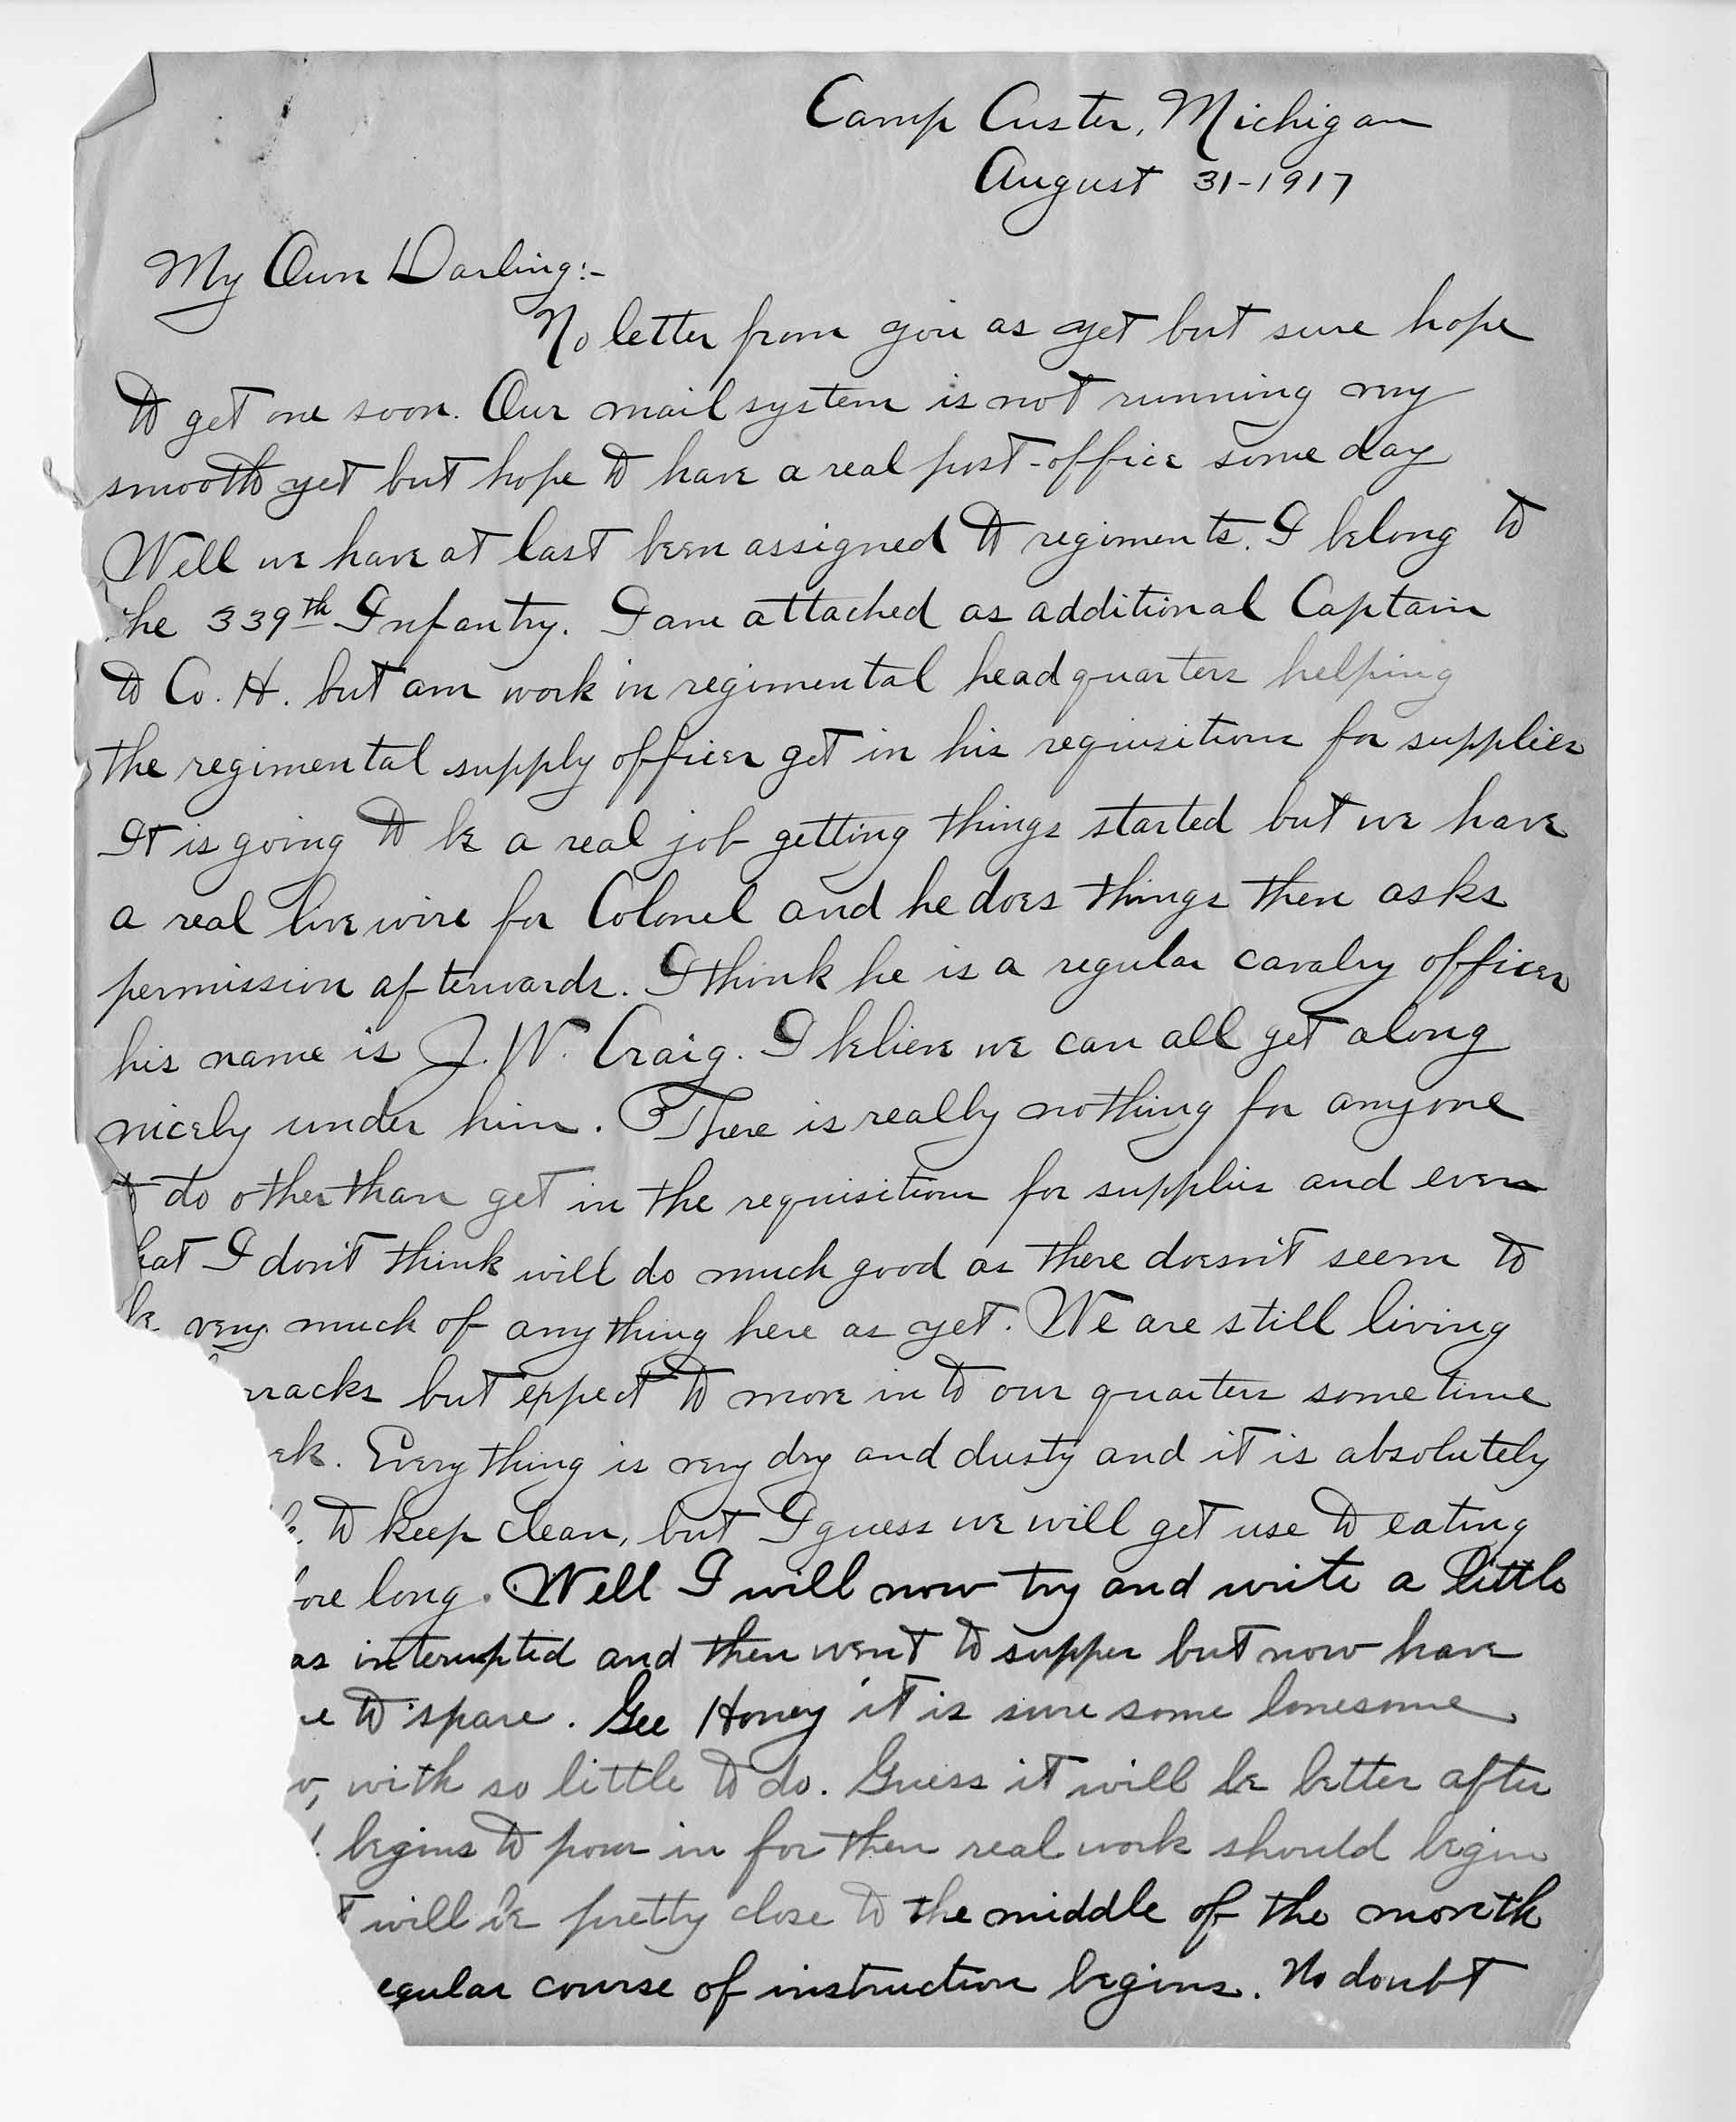 Camp Custer, Michigan
August 31-1917
My Own Darling:-
No letter from you as yet but sure hope
to get one soon. Our mail system is not running very
smooth yet but hope to have a real post-office some day
Well we have at last been assigned to regiments. I belong to
he 339th Infantry. I am attached as additional Captain
to Co. H. but am work in regimental headquarters helping
the regimental supply officer get in his requisitions for supplies
It is going to be a real job getting things started but we have
a real live wire for Colonel and he does things then asks
permission afterwards. I think he is a regular cavalry officer
his name is J. W. Craig. I believe we can all get along
nicely under him. There is really nothing for anyone
to do other than get in the requisitions for supplies and even
hat I don't think will do much good as there doesn't seem to
be very much of anything here as yet. We are still living
rracks but expect to move in to our quarters sometime
ek. Everything is very dry and dusty and it is absolutely
to keep clean, but I guess we will get use to eating
ore long. Well I will now try and write a little
as interupted and then went to supper but now have
e to spare. Gee Honey it is sure some lonesome
w, with so little to do. Guess it will be better after
begins to pour in for then real work should begin
t will be pretty close to the middle of the month
egular course of instruction begins. No doubt